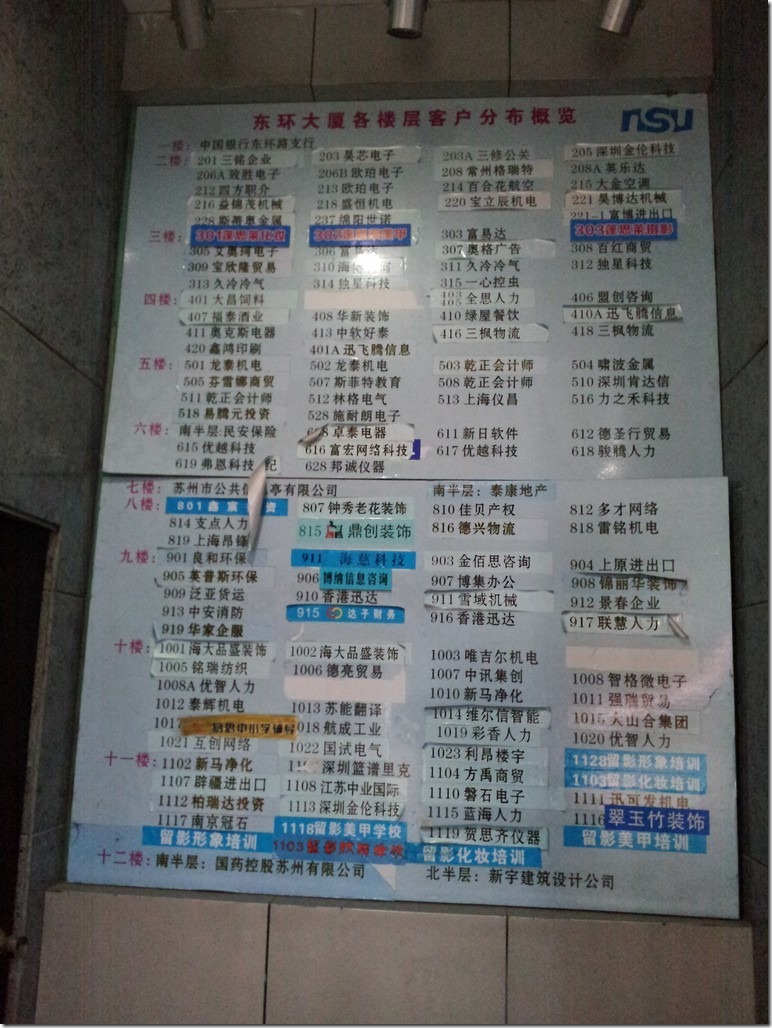 东环大厦各楼层客户分布概览 nsu
一楼: 中国银行东环路支行
二楼: 201 三铭企业 203 昊芯电子 203A 三修公关 205 深圳金伦科技
206A 致胜电子 206B 欧珀电子 208 常州格瑞特 208A 英乐达
212 四方职介 213 欧珀电子 214 百合花航空 215 大金空调
216 益锦茂机械 218 盛恒机电 220 宝立辰机电 221 昊博达机械
228 斯蒂奥金属 237 绵阳世诺 221-1 富博进出口
三楼: 303 富易达 303蓬思莱摄影
305 艾奥珂电子 306 富易达 307 奥格广告 308 百红商贸
309 宝欣隆贸易 310 311 久冷冷气 312 独星科技
313 久冷冷气 314 独星科技 315 一心控虫
四楼: 401 大昌饲料 403 405 全思人力 406 盟创咨询
407 福泰酒业 408 华新装饰 410 绿屋餐饮 410A 迅飞腾信息
411 奥克斯电器 413 中软好泰 416 三枫物流 418 三枫物流
420 鑫鸿印刷 401A 迅飞腾信息
五楼: 501 龙泰机电 502 龙泰机电 503 乾正会计师 504 啸波金属
505 芬雪娜商贸 507 斯菲特教育 508 乾正会计师 510 深圳肯达信
511 乾正会计师 512 林格电气 513 上海仪昌 516 力之禾科技
518 易腾元投资 528 施耐朗电子
六楼: 南半层:民安保险 卓泰电器 611 新日软件 612 德圣行贸易
615 优越科技 616 富宏网络科技 617 优越科技 618 骏腾人力
619 弗恩科技 628 邦诚仪器
七楼: 苏州市公共信 亭有限公司 南半层: 泰康地产
八楼: 801 鑫 资 807 钟秀老花装饰 810 佳贝产权 812 多才网络
814 支点人力 815 鼎创装饰 816 德兴物流 818 雷铭机电
819 上海昂锋
九楼: 901 良和环保 911 海慈科技 903 金佰思咨询 904 上原进出口
905 英普斯环保 906 博纳信息咨询 907 博集办公 908 锦丽华装饰
909 泛亚货运 910 香港迅达 911 雪域机械 912 景春企业
913 中安消防 915 达子财务 916 香港迅达 917 联慧人力
919 华家企服
十楼: 1001 海大品盛装饰 1002 海大品盛装饰 1003 唯吉尔机电
1005 铭瑞纺织 1006 德亮贸易 1007 中讯集创 1008 智格微电子
1008A 优智人力 1010 新马净化 1011 强瑞贸易
1012 泰辉机电 1013 苏能翻译 1014 维尔信智能 1015 大山合集团
1017 中小学辅导 1018 航成工业 1019 彩香人力 1020 优智人力
1021 互创网络 1022 国试电气 1023 利昂楼宇 1128留影形象培训
十一楼: 1102 新马净化 深圳篮谱里克 1104 方禹商贸 1103留影化妆培训
1107 辟疆进出口 1108 江苏中业国际 1110 磐石电子 1111 迅可发机电
1112 柏瑞达投资 1113 深圳金伦科技 1115 蓝海人力 1116 翠玉竹装饰
1117 南京冠石 1118留影美甲学校 1119 贺思齐仪器 留影美甲培训
留影形象培训 1103留影 留影化妆培训
十二楼: 南半层: 国药控股苏州有限公司 北半层: 新宇建筑设计公司